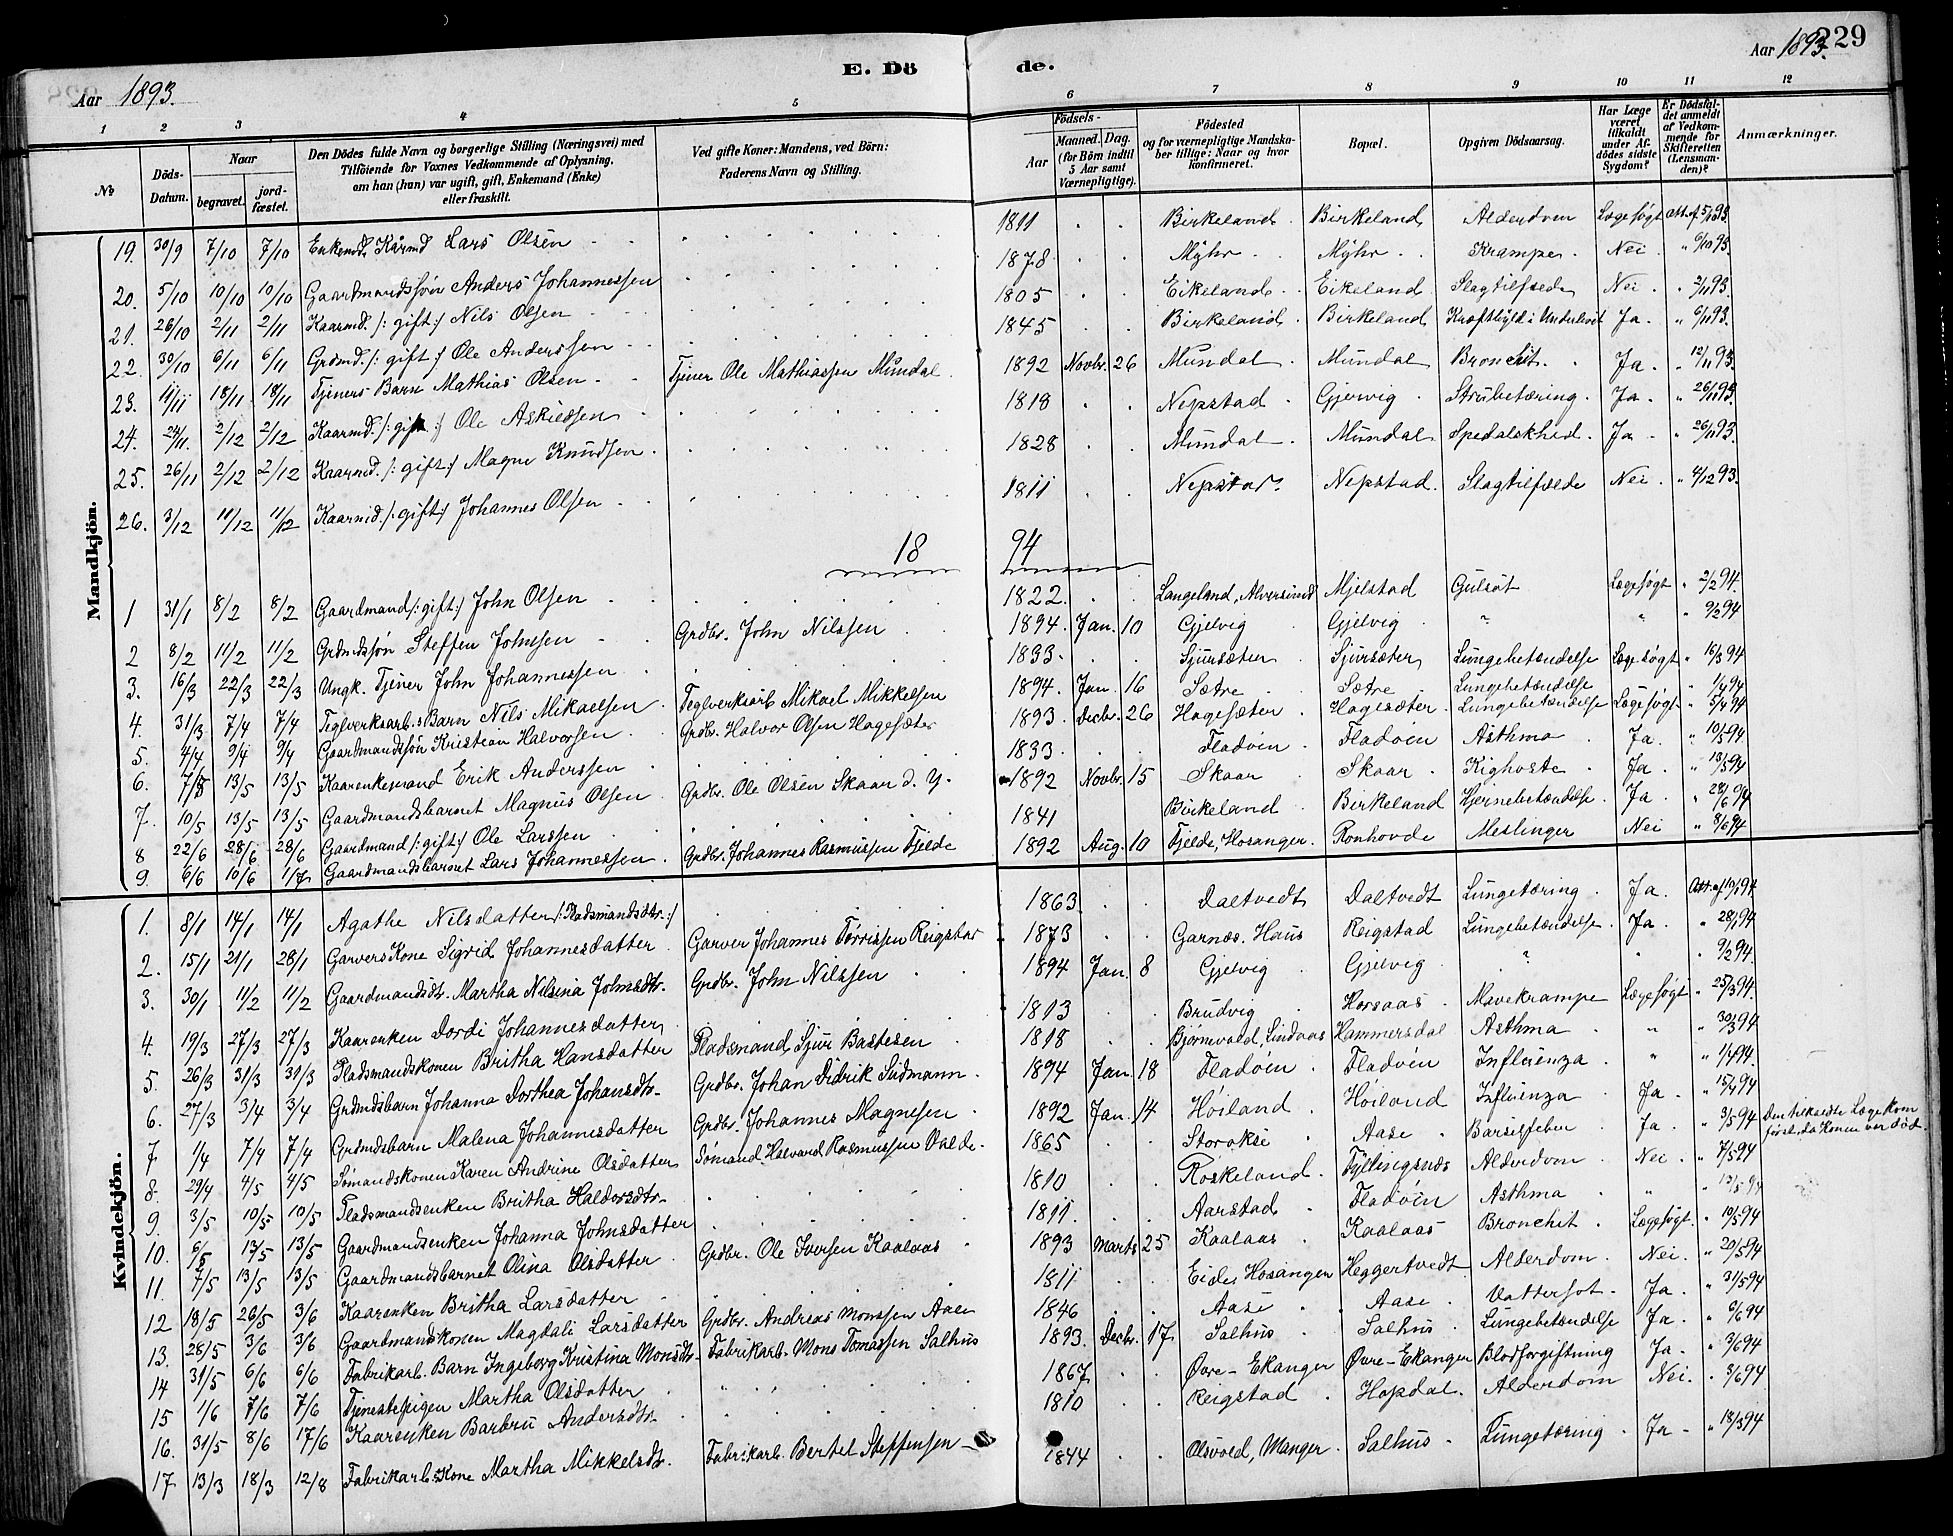 Aar 1893.
E. Dö de.
Aar 1893.
229
1 2 3 4 5 6 7 8 9 10 11 12
No
Döds-Datum.
Naar
begravet.
jord-fæstet.
Den Dödes fulde Navn og borgerlige Stilling (Næringsvei) med
Tilföiende for Voxnes Vedkommende af Oplysning,
om han (hun) var ugift, gift, Enkemand (Enke)
eller fraskilt.
Ved gifte Koner: Mandens, ved Börn:
Faderens Navn og Stilling.
Födsels-
Aar
Maaned. Dag.
(for Börn indtil
5 Aar samt
Værnepligtige).
Födested
og for værnepligtige Mandska-
ber tillige: Naar og hvor
konfirmeret.
Bopæl.
Opgiven Dödsaarsag.
Har Læge
været
tilkaldt
under Af-
dödes sidste
Sygdom?
Er Dödsfal-
det anmeldt
af Vedkom-
mende for
Skifteretten
(Lensman-
den)?
Anmærkninger.
Mandkjön.
19. 30/9 7/10 7/10 Enkemd. Kårmd Lars Olsen 1811 Birkeland Birkeland Alderdom Lægesøgt Att. af 5/10 93.
20. 5/10 10/10 10/10 Gaardmandssøn Anders Johannessen 1878 Myhr Myhr Krampe Nei " 6/10 93.
21. 26/10 2/11 2/11 Kaarmd. /: gift :/ Nils Olsen 1805 Eikeland Eikeland Slagtilfælde Nei " 2/11 93.
22. 30/10 6/11 6/11 Grdmd. /: gift :/ Ole Anderssen 1845 Birkeland Birkeland Kræftbyld i Underlivet Ja " 6/11 93.
23. 11/11 18/11 18/11 Tjeners Barn Mathias Olsen Tjener Ole Mathiassen Mundal 1892 Novbr. 26 Mundal Mundal Bronchit. Ja " 12/11 93.
24. 24/11 2/12 2/12 Kaarmd. /: gift :/ Ole Askildsen 1818 Nepstad Gjervig Strubetæring Ja " 26/11 93.
25. 26/11 2/12 2/12 Kaarmd. /: gift :/ Magne Knudsen 1828 Mundal Mundal Spedalskhed Ja " 26/11 93.
26. 3/12 11/12 11/12 Kaarmd. /: gift :/ Johannes Olsen 1811 Nepstad Nepstad Slagtilfælde Nei " 4/12 93.
18 94
1 31/1 8/2 8/2 Gaardmand /: gift :/ John Olsen 1822. Langeland, Alversund Mjelstad Gulsot Lægesøgt " 2/2 94.
2 8/2 11/2 11/2 Grdmdssøn Steffen Johnsen Grdbr. John Nilssen 1894. Jan. 10 Gjelvig Gjelvig " " " 9/2 94
3. 16/3 22/3 22/3 Ungk. Tjener John Johannessen 1833. Sjursæter Sjursæter Lungebetændelse Lægesøgt " 16/3 94
4. 31/3 7/4 7/4 Teglverksarb.s Barn Nils Mikaelsen Teglverksarb Mikael Mikkelsen 1894. Jan. 16 Sætre Sætre Lungebetændelse " 1/4 94
5. 4/4 9/4 9/4 Gaardmandssøn Kristian Halvorsen Grdbr. Halvor Olsen Hagesæter 1893. Decbr. 26 Hagesæter Hagesæter Lungebetændelse Lægesøgt " 5/4 94
6. 7/5 13/5 13/5 Kaarenkemand Erik Anderssen 1833. Fladøen Fladøen Asthma Ja. " 10/5 94
7. 10/5 13/5 13/5 Gaardmandsbarnet Magnus Olsen Grdbr. Ole Olsen Skaar d. Y. 1892 Novbr. 15 Skaar Skaar Kighoste Ja " 13/5 94
8 22/6 28/6 28/6 Gaardmand /: gift :/ Ole Larssen 1841 Birkeland Birkeland Hjernebetændelse Ja. " 28/6 94
9. 6/6 10/6 1/7 Gaardmandsbarnet Lars Johannessen Grdbr. Johannes Rasmussen Fjelde 1892 Aug. 10 Fjelde, Hosanger. Ronhovde Meslinger Nei " 8/6 94
Kvindekjön.
1. 8/1 14/1 14/1 Agathe Nilsdatter /: Pladsmandsdtr. :/ 1863. Daltvedt Daltvedt Lungetæring Ja Att. af 10/1 94
2. 15/1 21/1 28/1 Garvers Kone Sigrid Johannesdatter Garver Johannes Torrissen Reigstad 1873 Garnæs. Haus Reigstad Lungebetændelse Ja. " 28/1 94
3. 30/1 11/2 11/2 Gaardmandsdtr. Martha Nilsina Johnsdtr. Grdbr. John Nilssen 1894 Jan. 8 Gjelvig Gjelvig " " 9/2 94.
4. 19/3 27/3 27/3 Kaarenken Dordi Johannesdatter 1813 Brudvig Horsaas Mavekrampe Lægesøgt " 25/3 94.
5. 26/3 31/3 31/3 Pladsmandskonen Britha Hansdatter Pladsmand Sjur Bastesen 1818 Bjørnevold, Lindaas Hammersdal Asthma " " 30/3 94
6. 27/3 3/4 3/4 Grdmdsbarn Johanna Dorthea Johansdtr. Grdbr. Johan Didrik Sudmann 1894 Jan. 18 Fladøen Fladøen Influenza " " 1/4 94.
7 1/4 7/4 7/4 Grdmdsbarn Malena Johannesdatter Grdbr. Johannes Magnesen 1892 Jan. 14 Høiland Høiland Influenza Ja " 15/4 94
8. 29/4 4/5 4/5 Sømandskonen Karen Andrine Olsdatter Sømand Halvard Rasmussen Valde. 1865 Storakse Aase Barselfeber Ja. " 3/5 94 Den tilkaldte Læge kom først, da Konen var død.
9. 3/5 10/5 10/5 Pladsmandsenken Britha Haldorsdtr. 1810 Røskeland Fyllingsnæs Alderdom Nei " 7/5 94
10. 6/5 13/5 13/5 Gaardmandsenken Johanna Johnsdatter 1811. Aarstad Fladøen Asthma " " 13/5 94
11. 7/5 13/5 13/5 Gaardmandsbarnet Olina Olsdatter Grdbr. Ole Iversen Kaalaas 1893 Marts 25 Kaalaas Kaalaas Bronchit Lægesøgt. " 10/5 94
12 18/5 26/5 3/6 Kaarenken Britha Larsdatter 1811 Eide, Hosanger Heggertvedt Alderdom Nei. " 20/5 94
13. 28/5 3/6 3/6 Gaardmandskonen Magdali Larsdatter Grdbr. Andreas Monssen Aase 1846 Aase Aase Vattersot Ja. " 31/5 94
14 31/5 6/6 6/6 Fabrikarb. Barn Ingeborg Kristina Monsdtr. Fabrikarb. Mons Tomassen Salhus 1893. Decbr. 17. Salhus Salhus Lungebetændelse Ja. " 6/6 94
15 1/6 7/6 7/6 Tjenestepigen Martha Olsdatter 1867. Øvre-Ekanger Øvre-Ekanger Blodforgiftning Ja " 3/6 94
16. 31/5 8/6 17/6 Kaarenken Barbru Andersdtr. 1810 Reigstad Hopdal Alderdom Nei. " 3/6 94
17. 13/3 18/3 12/8 Fabrikarb. Kone Martha Mikkelsdtr. Fabrikarb. Bertel Steffensen 1844 Olsvold, Manger Salhus Lungetæring Ja " 18/3 94